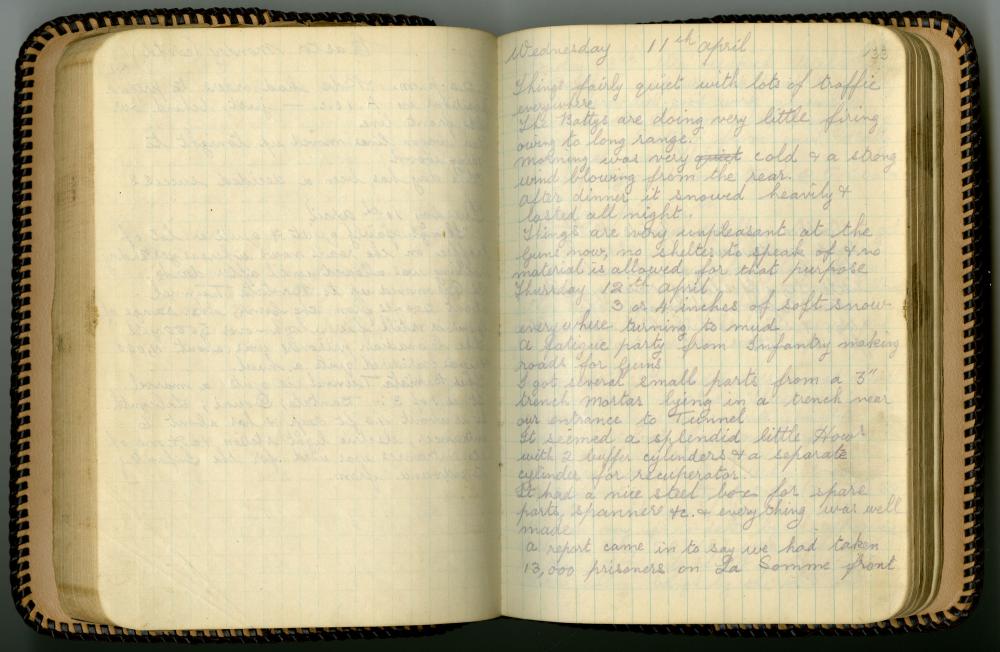 133
Wednesday 11th april
Things fairly quiet with lots of traffic
everywhere
The Battys are doing very little firing
owing to long range.
Morning was very quiet cold & a strong
wind blowing from the rear.
after dinner it snowed heavily &
lasted all night.
Things are very unpleasant at the
Guns now, no shelter to speak of & no
material is allowed for that purpose
Thursday 12th april
3 or 4 inches of soft snow
everywhere turning to mud
a fatigue party from Infantry making
roads for Guns
I got several small parts from a 3"
trench mortar lying in a trench near
our entrance to Tunnel
It seemed a splendid little Howr
with 2 buffer cylinders & a separate
cylinder for recuperator.
It had a nice steel box for spare
parts, spanners &c. & everything was well
made
a report came in to say we had taken
13,000 prisoners on La Somme front